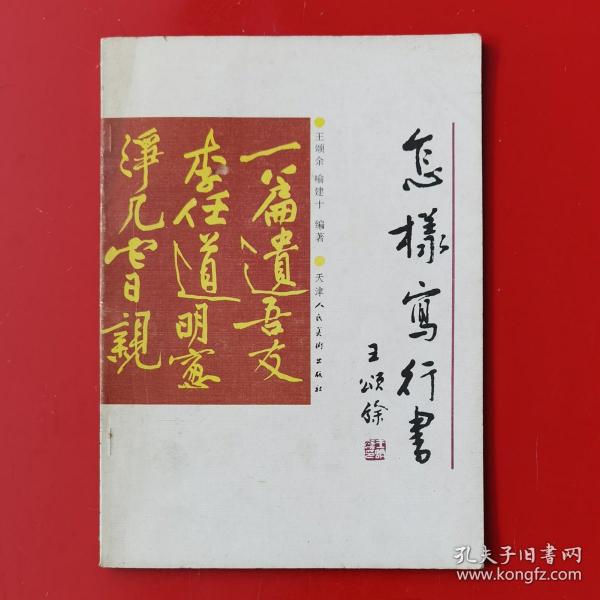 怎樣寫行書
王頌餘
王颂余 喻建十 编著
天津人民美术出版社
一篇遺吾友
李任道明窓
淨几時日親
孔夫子旧书网
www.kongfz.com